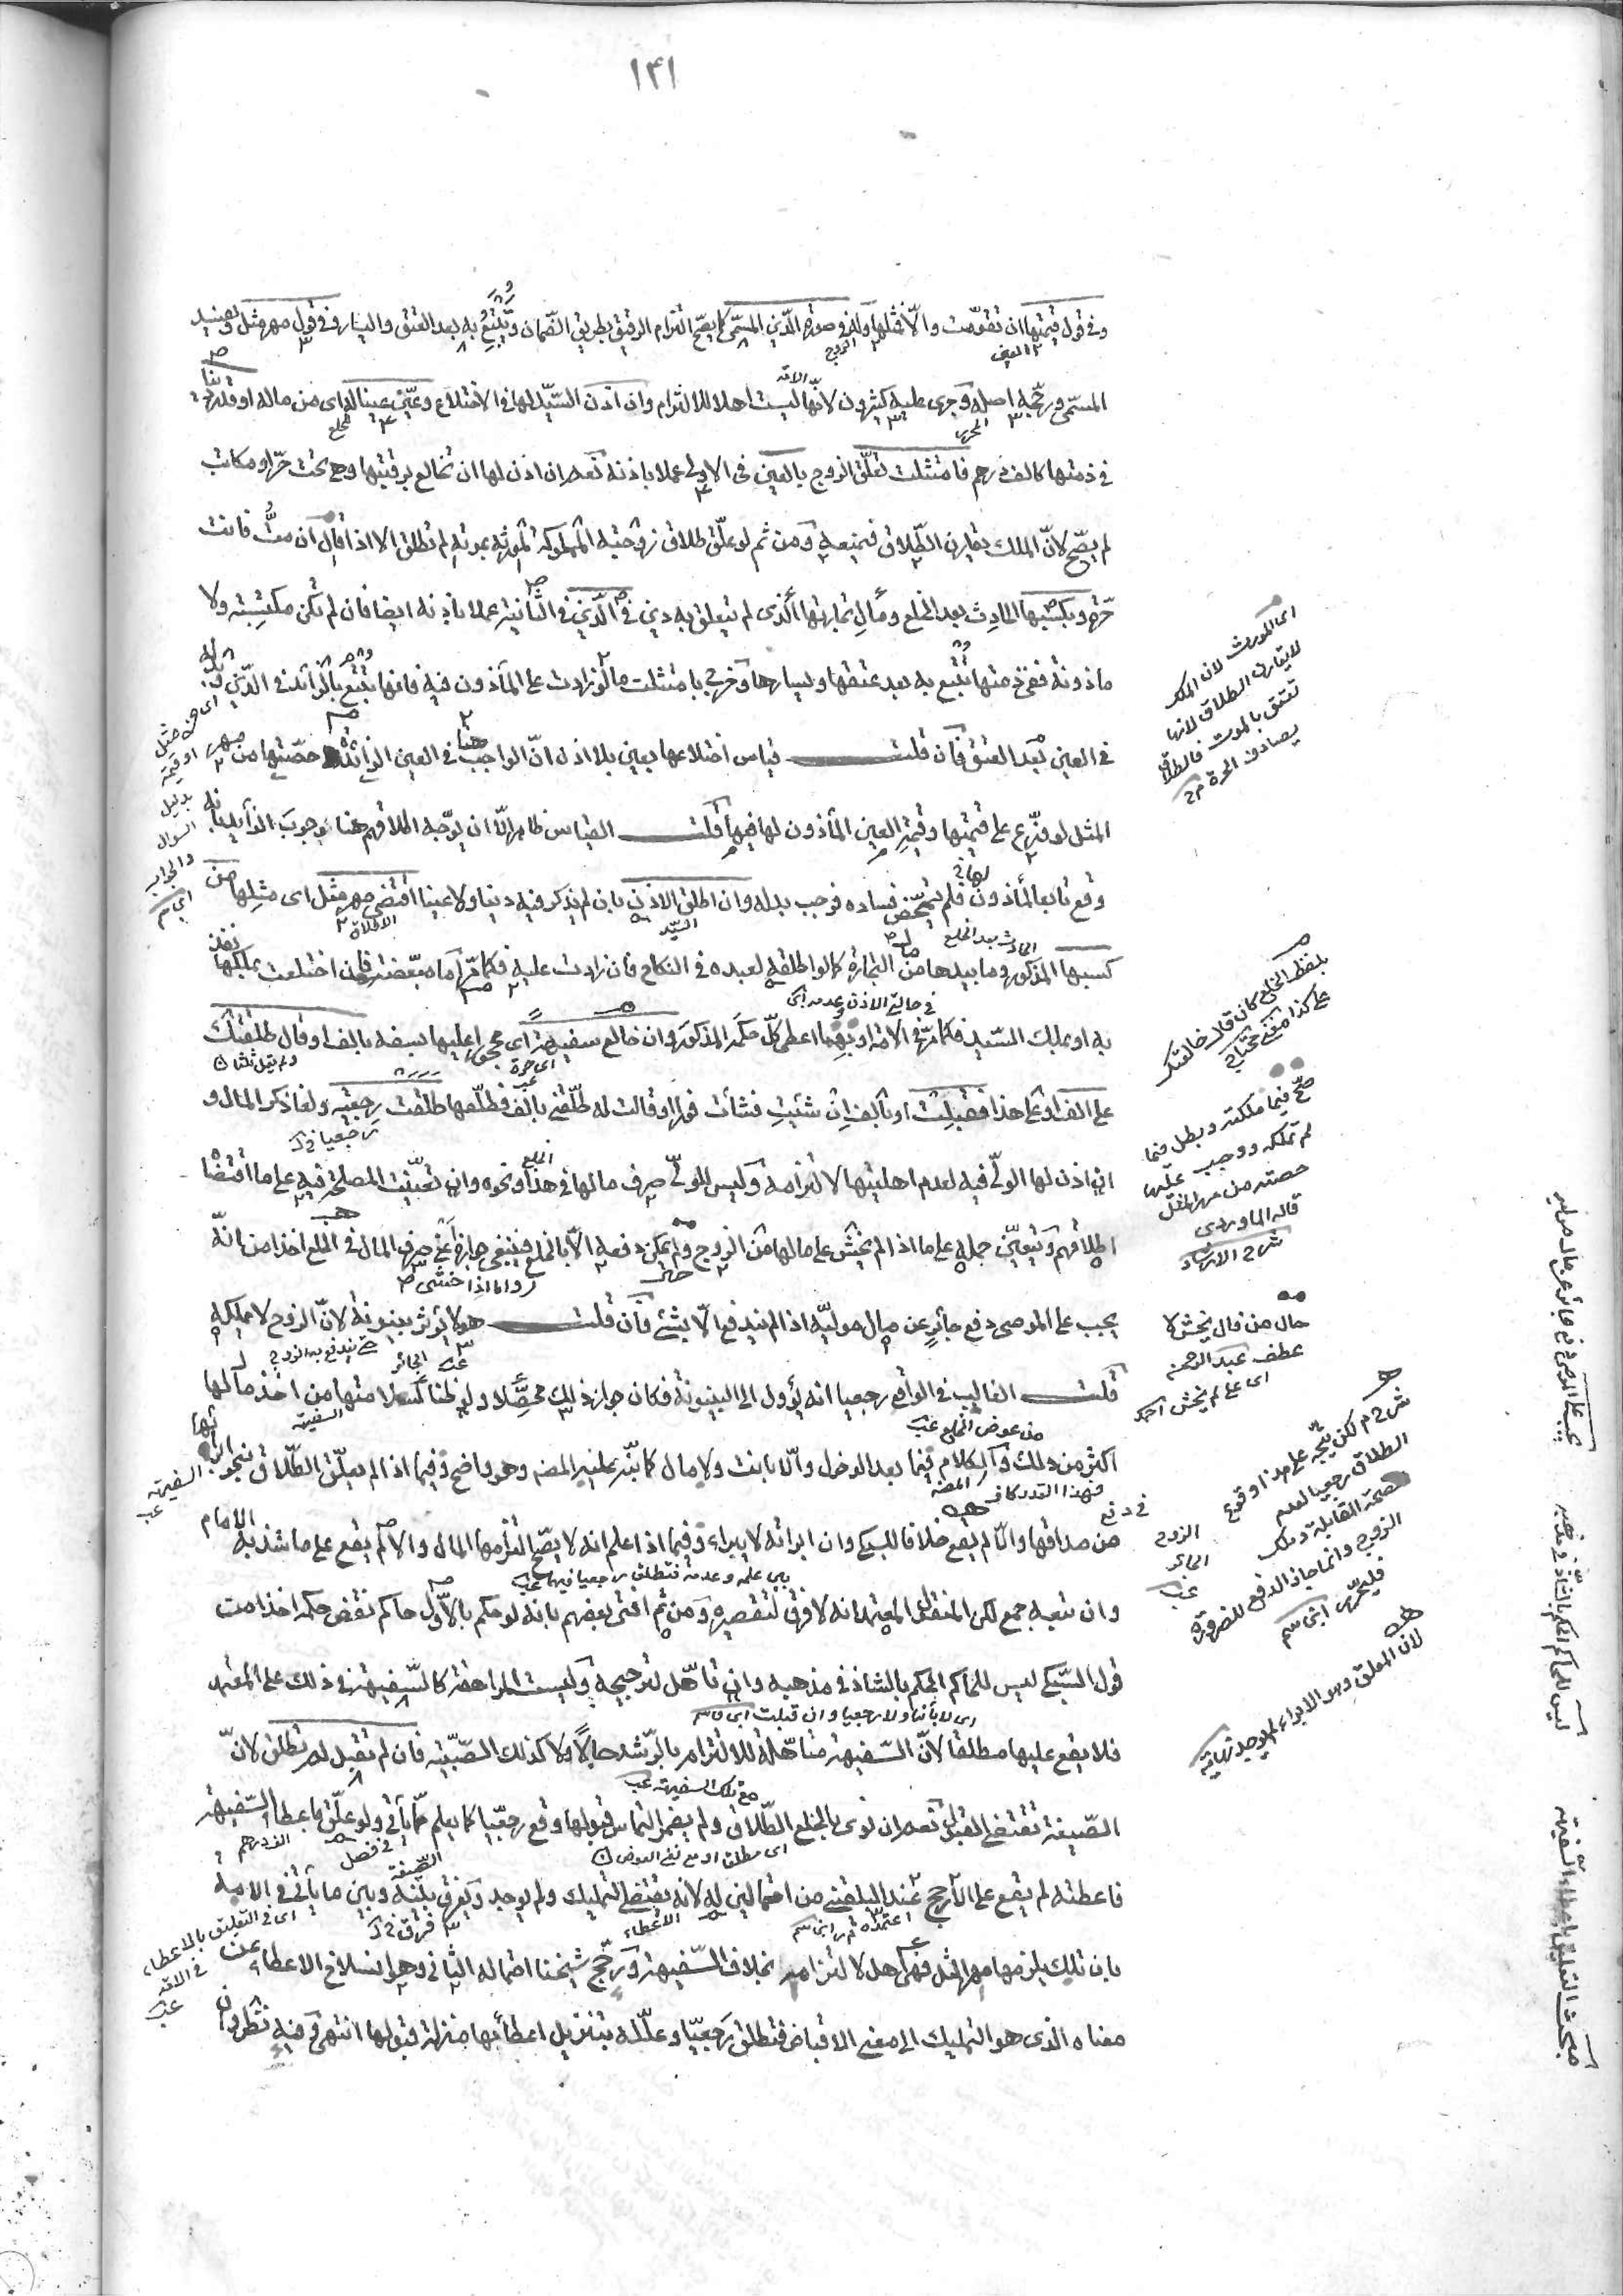 ١٤١
وفى قول قيمتها ان تقومت والا فمثلها وله فى صورة الدين المسمى كما يصح التزام الرقيق بطريق الضمان ويتبع به بعد العتق واليسار وفى قول مهر مثل لفسد
المسمى ورجحه اصله وجرى عليه كثيرون لانها ليست اهلا للالتزام وان اذن السيد لها فى الاختلاع وعين عينا له اى من ماله او قدر دينا
فى ذمتها كالف درهم فامتثلت تعلق الزوج بالعين فى الاولى عملا باذنه نعم ان اذن لها ان تخالع برقبتها وهى تحت حر او مكاتب
لم يصح لان الملك يقارن الطلاق فيمنعه ومن ثم لو علق طلاق زوجته المملوكة لمورثه بموته لم تطلق الا اذا قال ان مت فانت
حرة وبكسبها الحادث بعد الخلع ومال تجارتها الذى لم يتعلق به دين فى الدين فى الثانية عملا باذنه ايضا فان لم تكن مكتسبة ولا
ماذونة ففى ذمتها يتبع به بعد عتقها ويسارها وخرج بامتثلت ما لو زادت على المأذون فيه فانها تتبع بالزائد فى الدين وبدله
فى العين بعد العتق فان قلت قياس اختلاعها بعين بلا اذن ان الواجب هنا فى العين الزائدة حصتها من مهر
المثل لو وزع على قيمتها وقيمة العين المأذون لها فيها قلت القياس ظاهر الا ان يوجه اطلاقهم هنا وجوب الزائد بانه
وقع تابعا لمأذون لها فيه فلم يتمحض فساده فوجب بدله وان اطلق الاذن بان لم يذكر فيه دينا ولا عينا اقتضى مهر مثل اى مثلها من
كسبها المذكور وما بيدها من مال التجارة كما لو اطلقه لعبده فى النكاح فان زادت عليه فكما مر اما مبعضة فان اختلعت بملكها نفذ
به او بملك السيد فكما مر فى الامة او بهما اعطى كل حكمه المذكور وان خالع سفيهة اى محجورا عليها بسفه بالف او قال طلقتك
على الف او على هذا فقبلت او بالف ان شئت فشاءت فورا او قالت له طلقنى بالف فطلقها طلقت رجعية ولغا ذكر المال و
ان اذن لها الولى فيه لعدم اهليتها لالتزامه وليس للولى صرف مالها فى هذا ونحوه وان تعينت المصلحة فيه على ما اقتضاه
اطلاقهم ويتعين حمله على ما اذا لم يخش على مالها من الزوج ولم يمكن دفعه الا بالخلع فينبغى جوازه اعنى صرف المال فى الخلع اخذا من انه
يجب على الوصى دفع جائر عن مال موليه اذا لم يندفع الا بشئ فان قلت هو لا يؤثر بينونة لان الزوج لا يملكه
قلت الغالب فى الواقع رجعيا انه يؤول الى البينونة فكان جواز ذلك محصلا ولو ظنا لسلامتها من اخذ مالها
اكثر من ذلك والكلام فيما بعد الدخول والا بانت ولا مال كما نبه عليه المصنف وهو واضح وفيما اذا لم يعلق الطلاق بنحو ابرائها
من صداقها والا لم يقع خلافا للسبكى وان ابرأته لانه لا يبراء وفيما اذا علم انه لا يصح التزامها المال والا لم يقع على ما شذ به الامام
وان تبعه جمع لكن المنقول المعتمد انه لا فرق لتقصيره ومن ثم افتى بعضهم بانه لو حكم بالاول حاكم نقض حكمه اخذا من
قول السبكى ليس للحاكم الحكم بالشاذ فى مذهبه وان تأهل لترجيحه وليست المراهقة كالسفيهة فى ذلك على المعتمد
فلا يقع عليها مطلقا لان السفيهة متأهلة للالتزام بالرشد حالا ولا كذلك الصبية فان لم تقبل لم تطلق لان
الصيغة تقتضى القبول نعم ان نوى بالخلع الطلاق ولم يضمر التماس قبولها وقع رجعيا كما يعلم مما يأتى ولو علق باعطاء السفيهة
فاعطته لم يقع على الارجح عند البلقينى من احتمالين له لانه يقتضى التمليك ولم يوجد ويفرق بينه وبين ما يأتى فى الامة
بان تلك يلزمها مهر المثل فهى اهل لالتزامه بخلاف السفيهة ورجح شيخنا احتماله الثانى وهو انسلاخ الاعطاء عن
معناه الذى هو التمليك الى معنى الاقباض فتطلق رجعيا وعلله بتنزيل اعطائها منزلة قبولها انتهى وفيه نظر
اى المورث لان الملك
لا يقارن الطلاق لانها
تعتق بالموت فالطلاق
يصادف الحرة
بلفظ الخلع كان قال خالعتك
على كذا مغنى محتاج
صح فيما ملكته وبطل فيما
لم تملكه ووجب عليها
حصته من مهر المثل
قاله الماوردى
شرح الارشاد
حال من قال يخش لا
عطف عبد الرحمن
اى على لم يخش احمد
شرح م لكن يتجه على هذا وقوع
الطلاق رجعيا لعدم
صحة المقابلة وملك
الزوج وانما جاز الدفع للضرورة
فليحرر ابن سم
لان المعلق وهو الابراء لم يوجد نهاية
ليس للحاكم الحكم بالشاذ فى مذهبه
مبحث التعليق باعطاء السفيهة